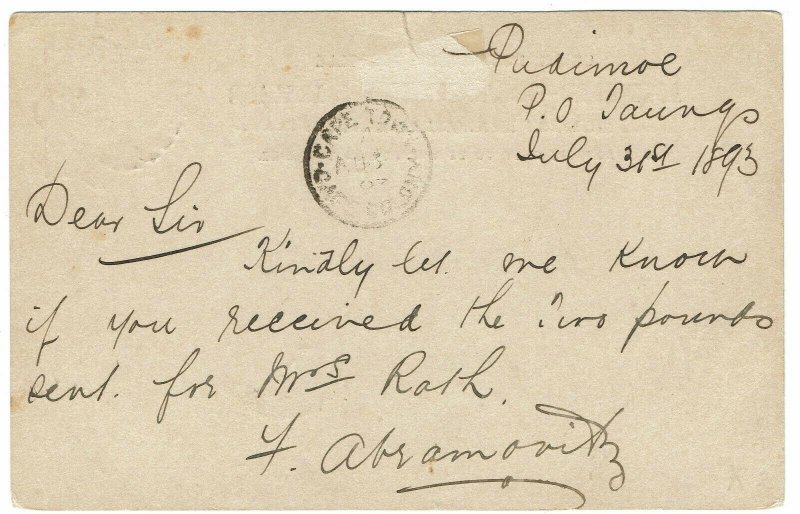 Pudimoe
P.O Taungs
July 31st 1893
CAPE TOWN
AU 3
93
Dear Sir
Kindly let me know
if you received the Two pounds
sent. for Mrs Roth.
F. Abramovitz